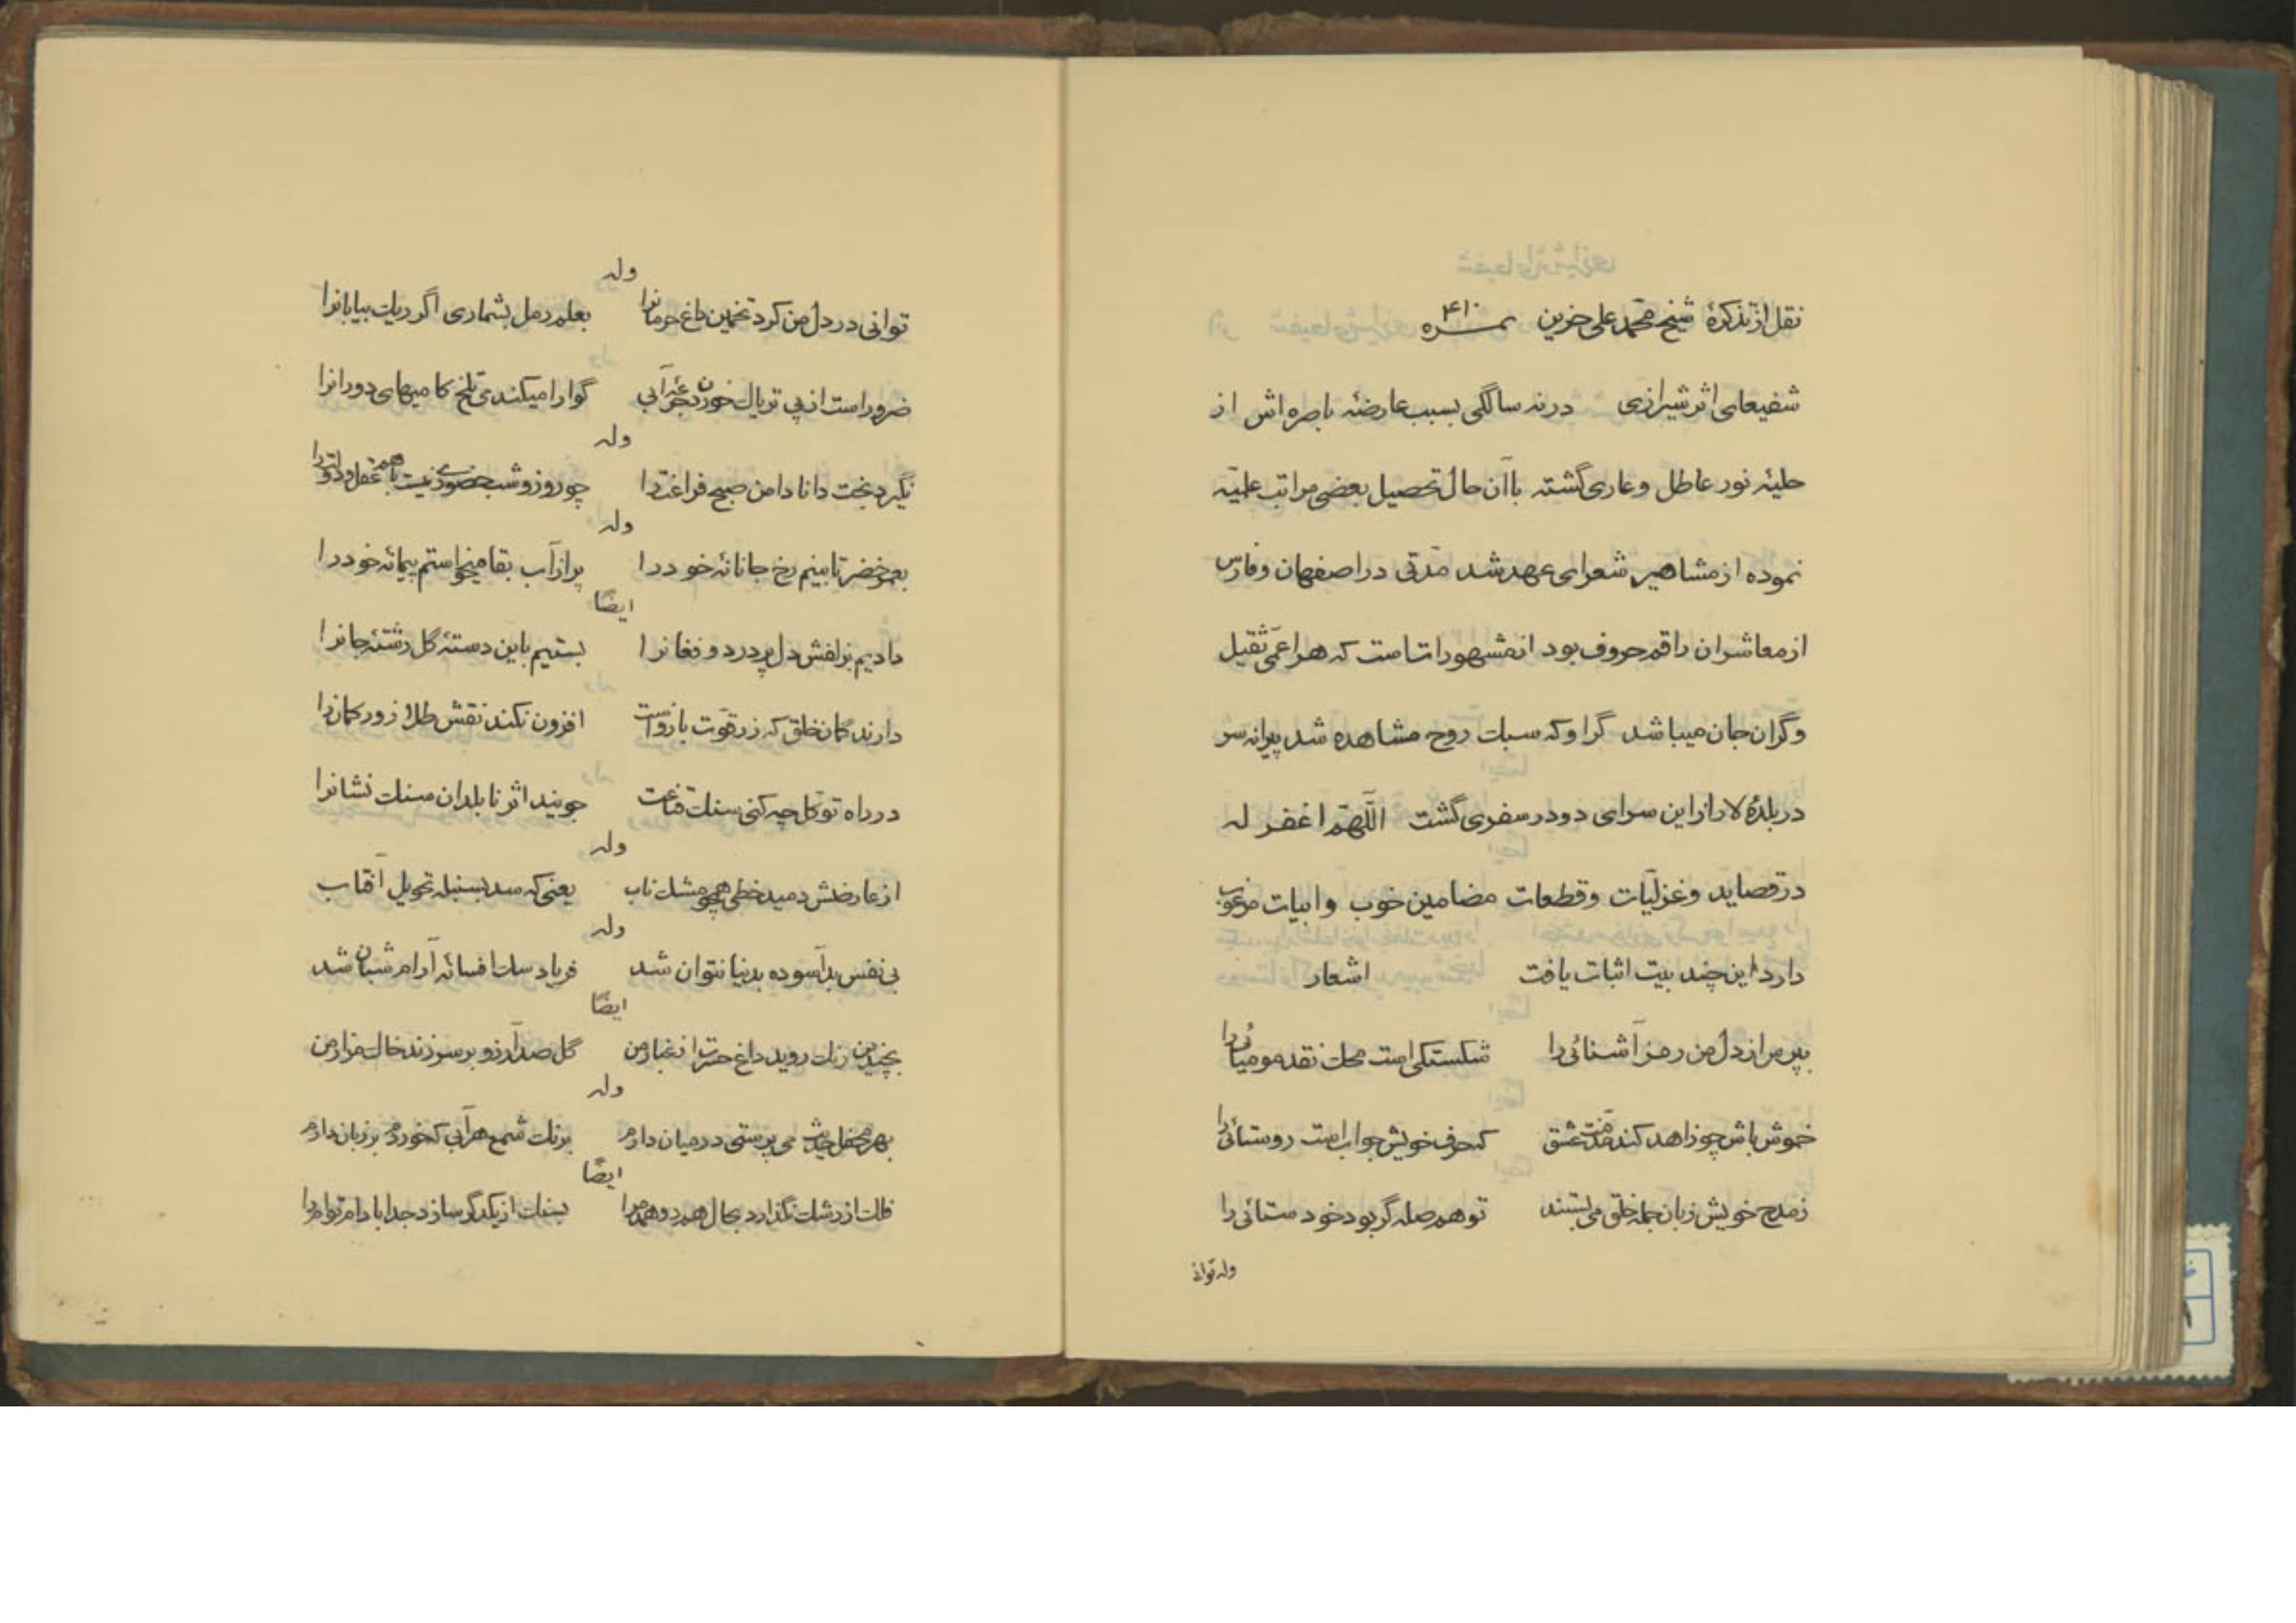 نقل از تذکرهٔ شیخ محمّد علی حزین نمره ۴۱۰
شفیعای اثر شیرازی در نه سالگی بسبب عارضهٔ باصره اش از
حلیهٔ نور عاطل و عاری گشته باآن حال تحصیل بعضی مراتب علمیّه
نموده از مشاهیر شعرای عهد شد مدّتی در اصفهان و فارس
از معاشران راقم حروف بود از مشهورات است که هر اعمی ثقیل
و گران جان میباشد گر او که سبک روح مشاهده شد پیرانه سر
در بلدهٔ لار از این سرای دو در سفری گشت اللّهمّ اغفر له
در قصاید و غزلیّات و قطعات مضامین خوب و ابیات مرغوب
دارد این چند بیت اثبات یافت اشعار
بپرس از دل من رمز آشنائی را شکستگی است محک نقد مومیائی را
خموش باش چو زاهد کند مذمت عشق که حرف خویش جواب است روستائی را
ز مدح خویش زبان جمله خلق می بستند تو هم صله گر بود خود ستائی را
وله توانی
وله
توانی در دل من کرد تخمین داغ حرمانرا بعلم رمل بشماری اگر ریک بیابانرا
ضرور است از پی تریاک خوردن جرعه آبی گوارا میکند می تلخ کامیهای دورانرا
وله
نگیرد بخت دانا دامن صبح فراغت را چو روز و شب حضوری نیست با هم عقل و دولت را
وله
بعمر خضر تا بینم رخ جانانهٔ خود را پر از آب بقا میخواستم پیمانهٔ خود را
ایضًا
دادیم بزلفش دل پر درد و فغانرا بستیم باین دستهٔ گل رشتهٔ جانرا
دارند گمان خلق که زر قوّت بازو است افزون نکند نقش طلا زور کمان را
در راه توکل چه کنی سنک قناعت جویند اثر نابلدان سنک نشانرا
وله
از عارضش دمید خطی همچو مشک ناب یعنی که شد بسنبله تحویل آفتاب
وله
بی نفس بد آسوده بدنیا نتوان شد فریاد سک افسانهٔ آرام شبان شد
ایضًا
بچندین رنک روید داغ حسرت از غبار من گل صد آرزو بر سر زند خاک مزار من
وله
بهر محفل حدیث می پرستی در میان دارم برنک شمع هر آبی که خوردم بر زبان دارم
ایضًا
فلک از رشک نگذارد بحال هم دو همدم را بسنک از یکدگر سازد جدا بادام توام را